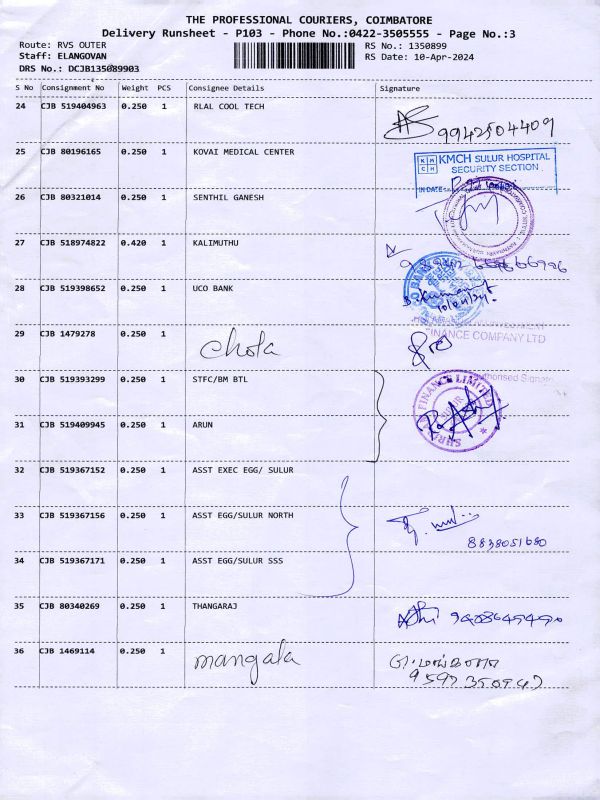 THE PROFESSIONAL COURIERS, COIMBATORE
Delivery Runsheet - P103 - Phone No.:0422-3505555 - Page No.:3
Route: RVS OUTER
RS No.: 1350899
Staff: ELANGOVAN
RS Date: 10-Apr-2024
DRS No.: DCJB135089903
S No Consignment No Weight PCS Consignee Details Signature
24 CJB 519404963 0.250 1 RLAL COOL TECH
9942504409
25 CJB 80196165 0.250 1 KOVAI MEDICAL CENTER
KMCH SULUR HOSPITAL
SECURITY SECTION
IN DATE
26 CJB 80321014 0.250 1 SENTHIL GANESH
27 CJB 518974822 0.420 1 KALIMUTHU
28 CJB 519398652 0.250 1 UCO BANK
10/04/24
29 CJB 1479278 0.250 1 Chola
FINANCE COMPANY LTD
30 CJB 519393299 0.250 1 STFC/BM BTL
Authorised
FINANCE LIMITED
31 CJB 519409945 0.250 1 ARUN
32 CJB 519367152 0.250 1 ASST EXEC EGG/ SULUR
33 CJB 519367156 0.250 1 ASST EGG/SULUR NORTH
8838051680
34 CJB 519367171 0.250 1 ASST EGG/SULUR SSS
35 CJB 80340269 0.250 1 THANGARAJ
36 CJB 1469114 0.250 1 mangala